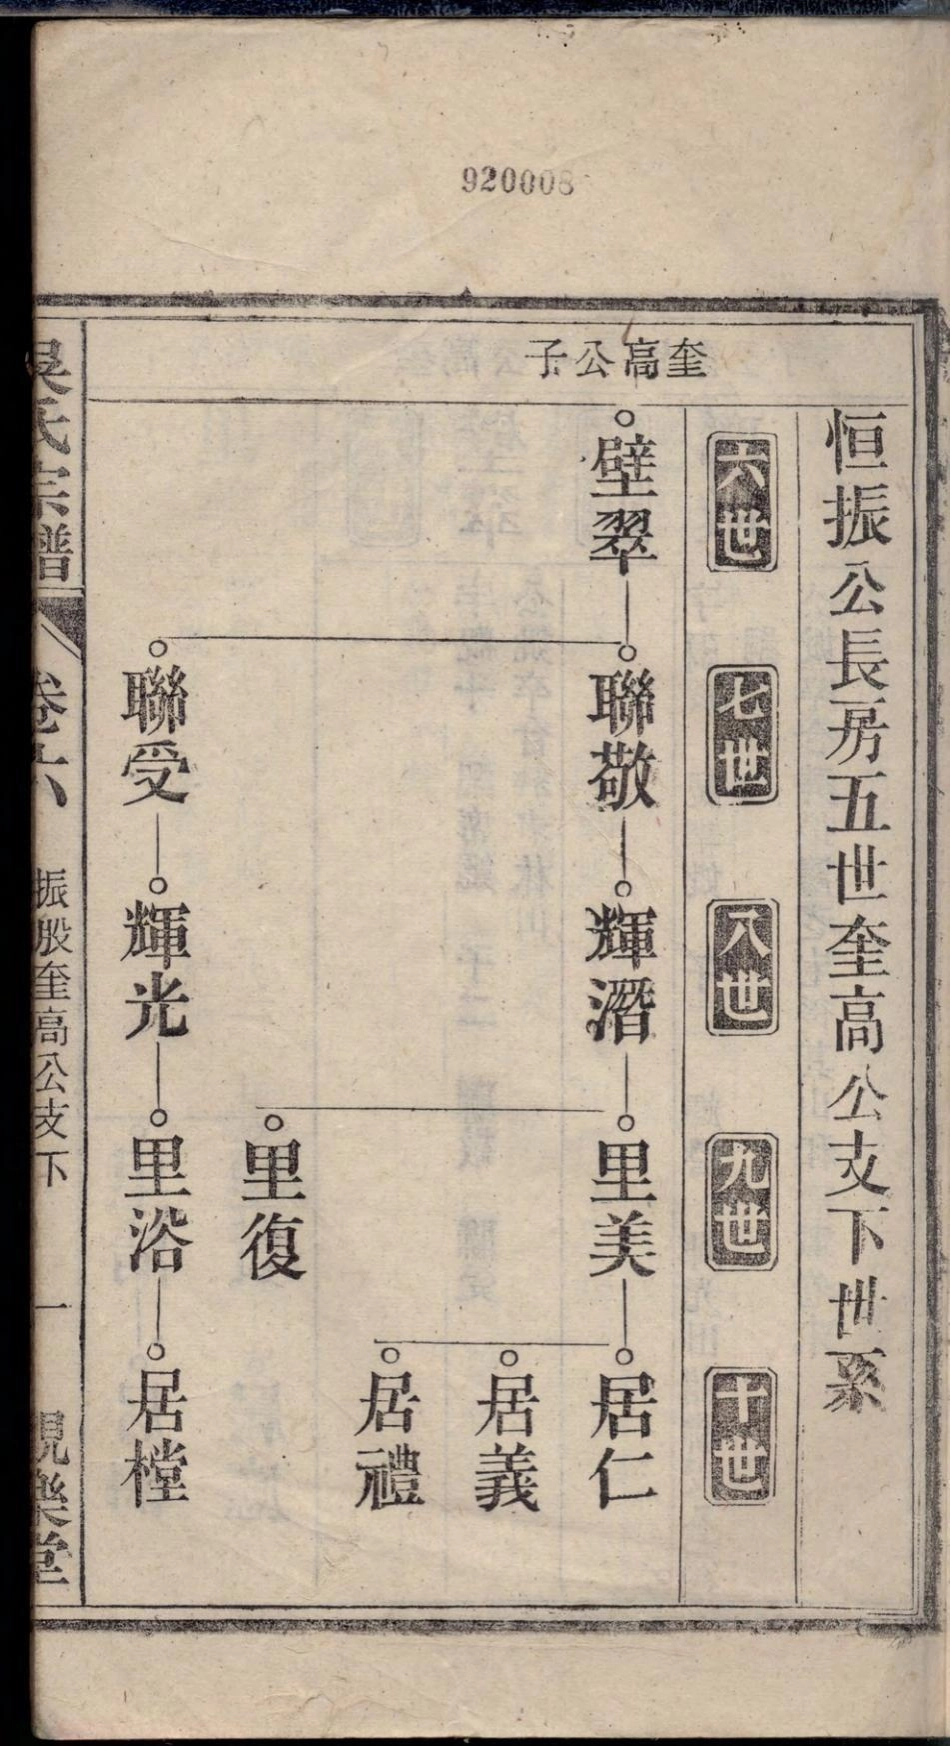 920008
奎高公子
恒振公長房五世奎高公支下世系
六世
七世
八世
九世
十世
壁翠
聯敬
輝潛
里美
居仁
居義
居禮
里復
聯受
輝光
里浴
居樘
吳氏宗譜
卷六
振股奎高公支下
一
現樂堂